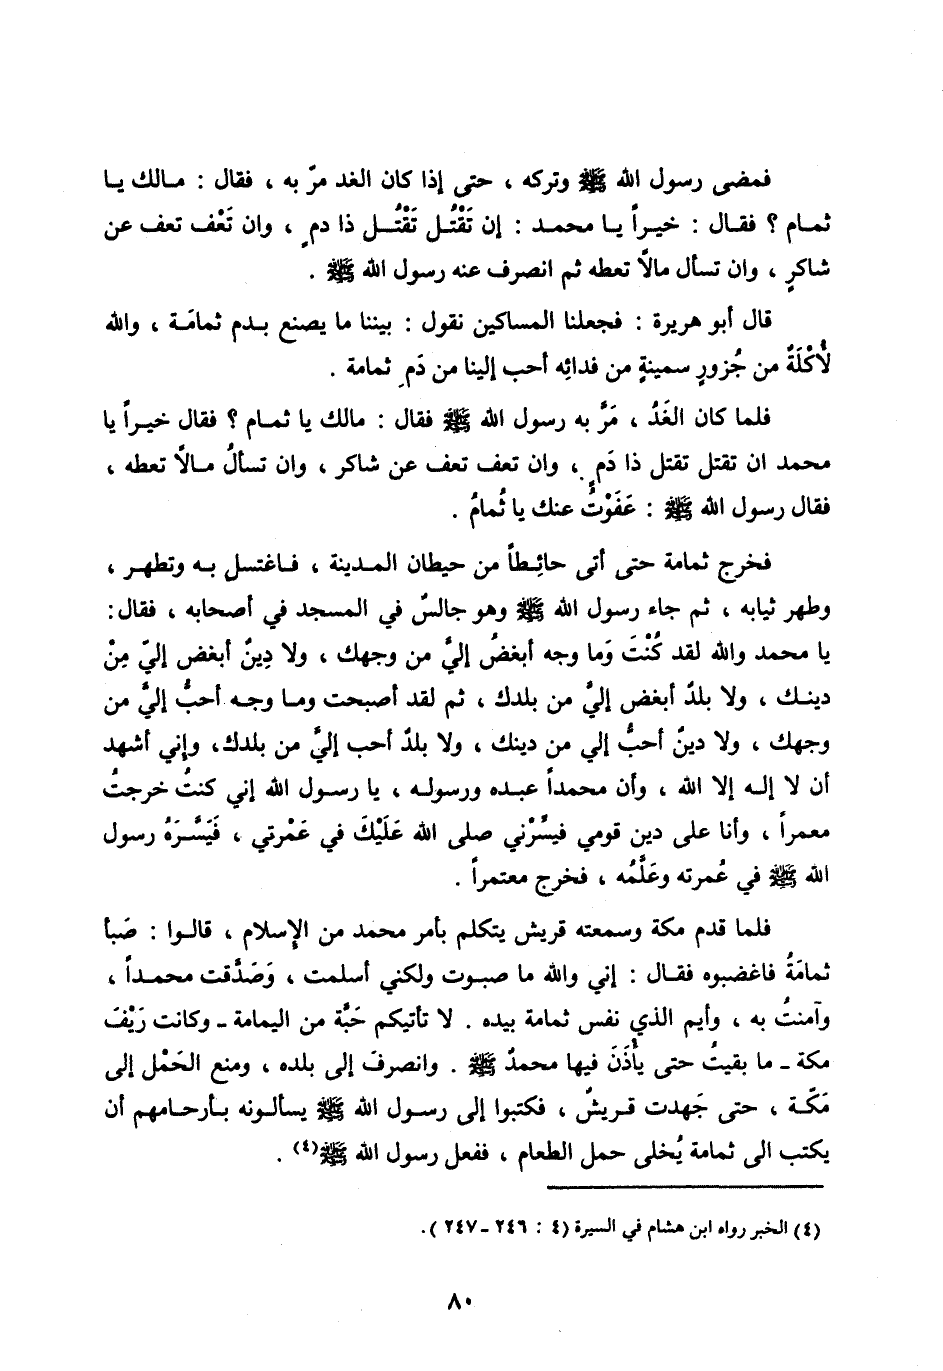 فمضى رسول الله ﷺ وتركه ، حتى إذا كان الغد مرّ به ، فقال : مـالك يـا
ثمـام ؟ فقـال : خيـراً يـا محمـد : إن تَقْتُـل تَقْتُـل ذا دمٍ ، وان تَعْف تعف عن
شاكرٍ ، وان تسأل مالاً تعطه ثم انصرف عنه رسول الله ﷺ .
قال أبو هريرة : فجعلنا المساكين نقول : بيننا ما يصنع بـدم ثمامَـة ، والله
لأُكْلَةٌ من جُزورٍ سمينةٍ من فدائِه أحب إلينا من دَمِ ثمامة .
فلما كان الغَدُ ، مَرَّ به رسول الله ﷺ فقال : مالك يا ثمام ؟ فقال خيـراً يا
محمد ان تقتل تقتل ذا دَمٍ ، وان تعف تعف عن شاكر ، وان تسألُ مـالاً تعطه ،
فقال رسول الله ﷺ : عَفَوْتُ عنك يا ثُمامُ .
فخرج ثمامة حتى أتى حائِـطاً من حيطان المـدينة ، فـاغتسل بـه وتطهـر ،
وطهر ثيابه ، ثم جاء رسول الله ﷺ وهو جالسٌ في المسجد في أصحابه ، فقال:
يا محمد والله لقد كُنْتَ وَما وجه أبغضُ إليَّ من وجهك ، ولا دِينٌ أبغض إليّ مِنْ
دينـك ، ولا بلدٌ أبغض إليَّ من بلدك ، ثم لقد أصبحت ومـا وجـه أحبُّ إليَّ من
وجهك ، ولا دينٌ أحبُّ إلي من دينك ، ولا بلدٌ أحب إليَّ من بلدك، وإني أشهد
أن لا إلـه إلا الله ، وأن محمداً عبـده ورسولـه ، يا رسـول الله إني كنتُ خرجتُ
معمراً ، وأنا على دين قومي فيسِّرْني صلى الله عَلَيْكَ في عَمْرتي ، فَيَسَّـرَهُ رسول
الله ﷺ في عُمرته وعَلَّمُه ، فخرج معتمراً .
فلما قدم مكة وسمعته قريش يتكلم بأمر محمد من الإسلام ، قالـوا : صَبأ
ثمامَةُ فاغضبوه فقـال : إني والله ما صبـوت ولكني أسلمت ، وَصَدَّقت محمـداً ،
وآمنتُ به ، وأيم الذي نفس ثمامة بيده . لا تأتيكم حَبَّة من اليمامة ـ وكانت رَيْفَ
مكة ـ ما بقيتُ حتى يأْذَنَ فيها محمدٌ ﷺ . وانصرفَ إلى بلده ، ومنع الحَمْل إلى
مَكّـة ، حتى جَهدت قـريشٌ ، فكتبوا إلى رسـول الله ﷺ يسألـونه بـأرحـامهم أن
يكتب الى ثمامة يُخلى حمل الطعام ، ففعل رسول الله ﷺ(٤) .
(٤) الخبر رواه ابن هشام في السيرة (٤ : ٢٤٦ ـ ٢٤٧ ).
٨٠